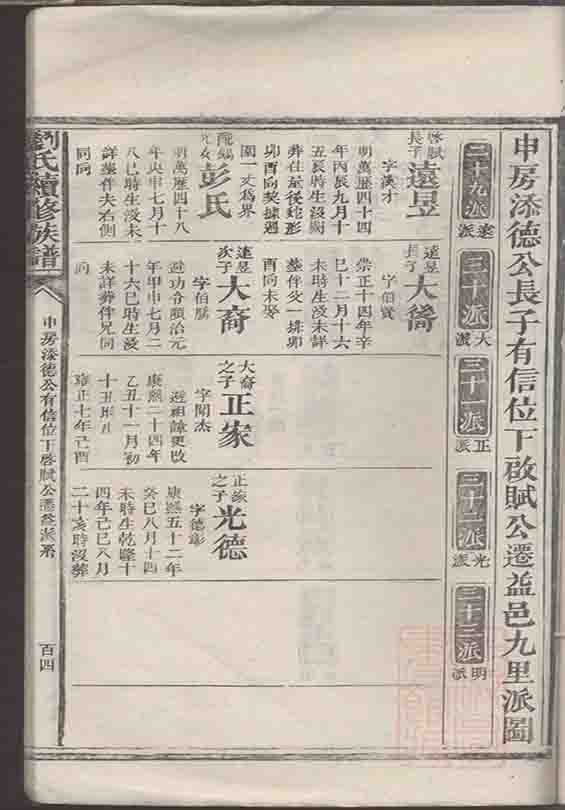 申房添德公長子有信位下啟賦公遷益邑九里派圖
二十九派
遠派
三十派
大派
三十一派
正派
三十二派
光派
三十三派
明派
啓賦長子
遠昱
字漢才
明萬歷四十四
年丙辰九月十
五辰時生沒闕
葬在屋後蛇形
卯酉向契據遇
圍一丈為界
配
彭氏
明萬歷四十八
年庚申七月十
八巳時生沒未
詳葬伴夫右側
同向
遠昱長子
大裔
字伯賓
崇正十四年辛
巳十二月十六
未時生沒未詳
葬伴父一排卯
酉向未娶
遠昱次子
大裔
字伯賦
避功令順治元
年甲申七月二
十六巳時生沒
未詳葬伴兄同
向
大裔之子
正家
字聞杰
避祖諱更改
康熙二十四年
乙丑十一月初
十丑時生
雍正七年己酉
正家之子
光德
字德彰
康熙五十二年
癸巳八月十四
未時生乾隆十
四年己巳八月
二十亥時沒葬
劉氏續修族譜
卷八
申房添德公有信位下啓賦公遷益派系
百四